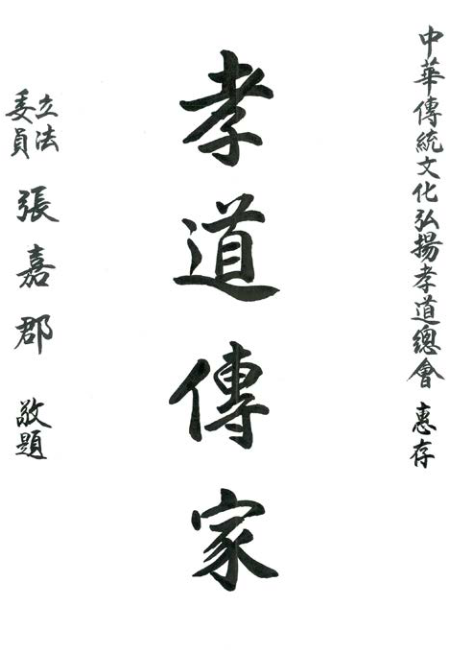 中華傳統文化弘揚孝道總會 惠存
孝道傳家
立法委員 張嘉郡 敬題